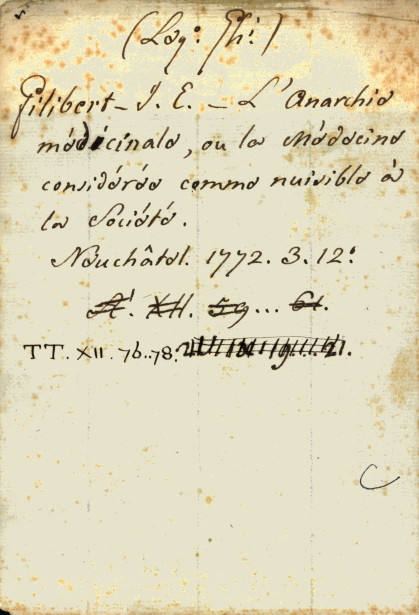 (Log: Ph:)
Gilibert - J. E. - L'Anarchie
médécinale, ou la Médecine
considérée comme nuisible à
la Société.
Neuchâtel. 1772. 3. 12:
A'. XII. 59... 61.
TT. XII. 76..78.